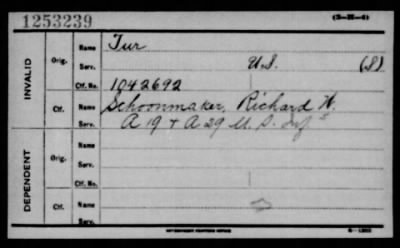 1253239
INVALID
Orig.
Name
Tur
Serv.
U.S. (S)
Ctf. No.
1042692
Ctf.
Name
Schoonmaker, Richard W.
Serv.
A 19 + A 29 U.S. Inf's
DEPENDENT
Orig.
Name
Serv.
Ctf. No.
Ctf.
Name
Serv.